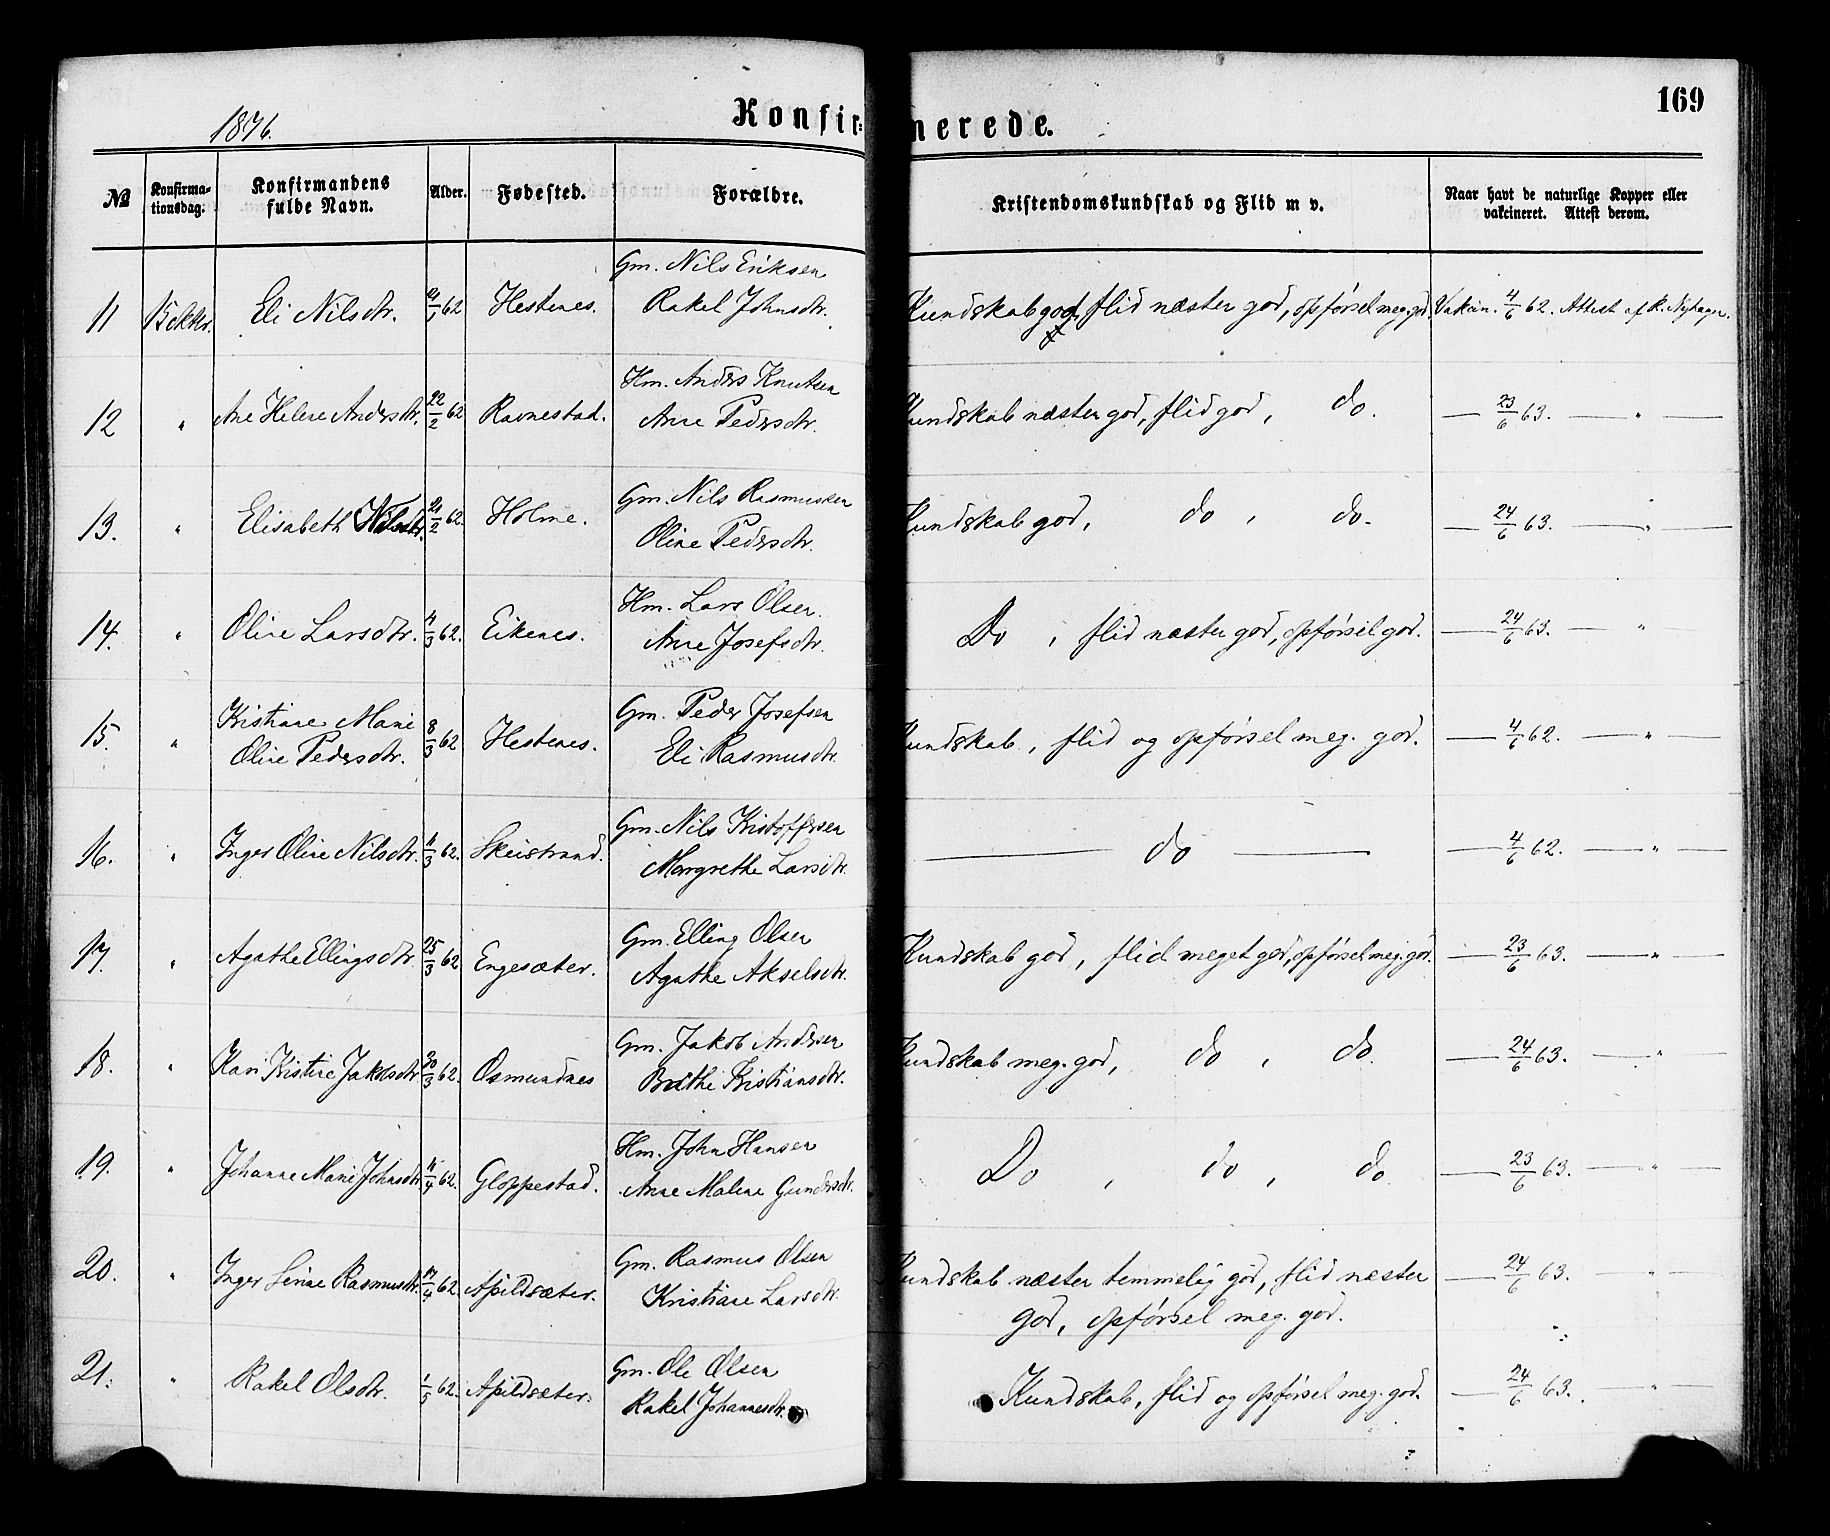 1876.
Konfir-
merede.
169
No
Konfirma-
tionsdag.
Konfirmandens
fulde Navn.
Alder.
Fødested.
Forældre.
Kristendomskundskab og Flid m v.
Naar havt de naturlige Kopper eller
vakcineret. Attest derom.
Gm. Nils Eriksen
11 15 oktbr. Eli Nilsdtr. 62 Hestenes. Rakel Johnsdtr. Kundskab god, flid næsten god, opførsel meg. god. Vakcin. 4/6 62. Attest af R.
Hm. Anders Knutsen
12 " Ane Helene Andersdtr. 22/2 62 Ravnestad. Anne Pedersdtr. Kundskab næsten god, flid god, do. — 23/6 63. — " —
Gm. Nils Rasmussen
13. " Elisabeth Nilsdtr. 2 62. Holme. Oline Pedersdtr. Kundskab god, do, do. — 24/6 63. — " —
Hm. Lars Olsen.
14. " Oline Larsdtr. 3 62. Eikenes. Anne Josefsdtr. Do, flid næsten god, opførsel god. — 24/6 63. — "
Kristiane Marie Gm. Peder Josefsen
15. " Oline Pedersdtr. 8/3 62 Hestenes. Eli Rasmusdtr. Kundskab, flid og opførsel meg. god. — 4/6 62. — " —
Gm. Nils Kristoffersen
16. " Inger Oline Nilsdtr. 11/3 62. Skeistrand. Margrethe Larsdtr. — do — — 4/6 62. — " —
Gm. Elling Olsen
17. " Agathe Ellingsdtr. 25/3 62 Engesæter. Agathe Akselsdtr. Kundskab god, flid meget god, opførsel meg. god. — 23/6 63. — " —
Gm. Jakob Andersen
18. " Kari Kistine Jakobsdtr. 30/3 62. Osmundnes Brithe Kristiansdtr. Kundskab meg. god, do, do. — 24/6 63. — " —
Hm. John Hansen
19. " Johanne Marie Johnsdtr. 4 62. Gloppestad. Anne Malene Gundersdtr. Do, do, do — 23/6 63. — " —
Gm. Rasmus Olsen
20. " Inger Rasmusdtr. 4 62. Apildsæter. Kristiane Larsdtr. Kundskab næsten temmelig god, flid næsten — 24/6 63. — " —
god, opførsel meg. god.
Gm. Ole Olsen
21. " Rakel Olsdtr. 1/5 62. Apildsæter. Rakel Johannesdtr. Kundskab, flid og opførsel meg. god. — 24/6 63. — " —